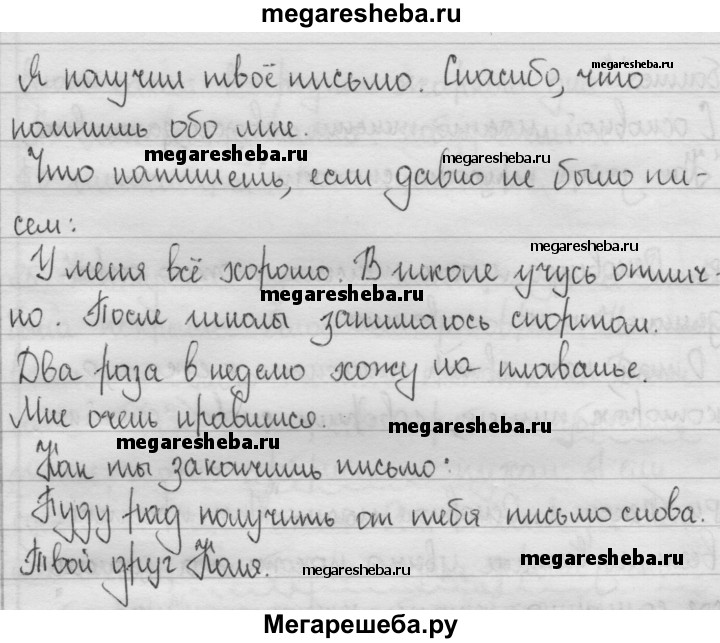 megaresheba.ru
Я получил твоё письмо. Спасибо, что
megaresheba.ru
помнишь обо мне.
megaresheba.ru
megaresheba.ru
Что напишешь, если давно не было пи-
сем:
megaresheba.ru
У меня всё хорошо. В школе учусь отлич-
megaresheba.ru
но. После школы занимаюсь спортом.
Два раза в неделю хожу на плаванье.
Мне очень нравится
megaresheba.ru
megaresheba.ru
Как ты закончишь письмо:
Буду рад получить от тебя письмо снова.
Твой друг Коля.
megaresheba.ru
megaresheba.ru
Мегарешеба.ру